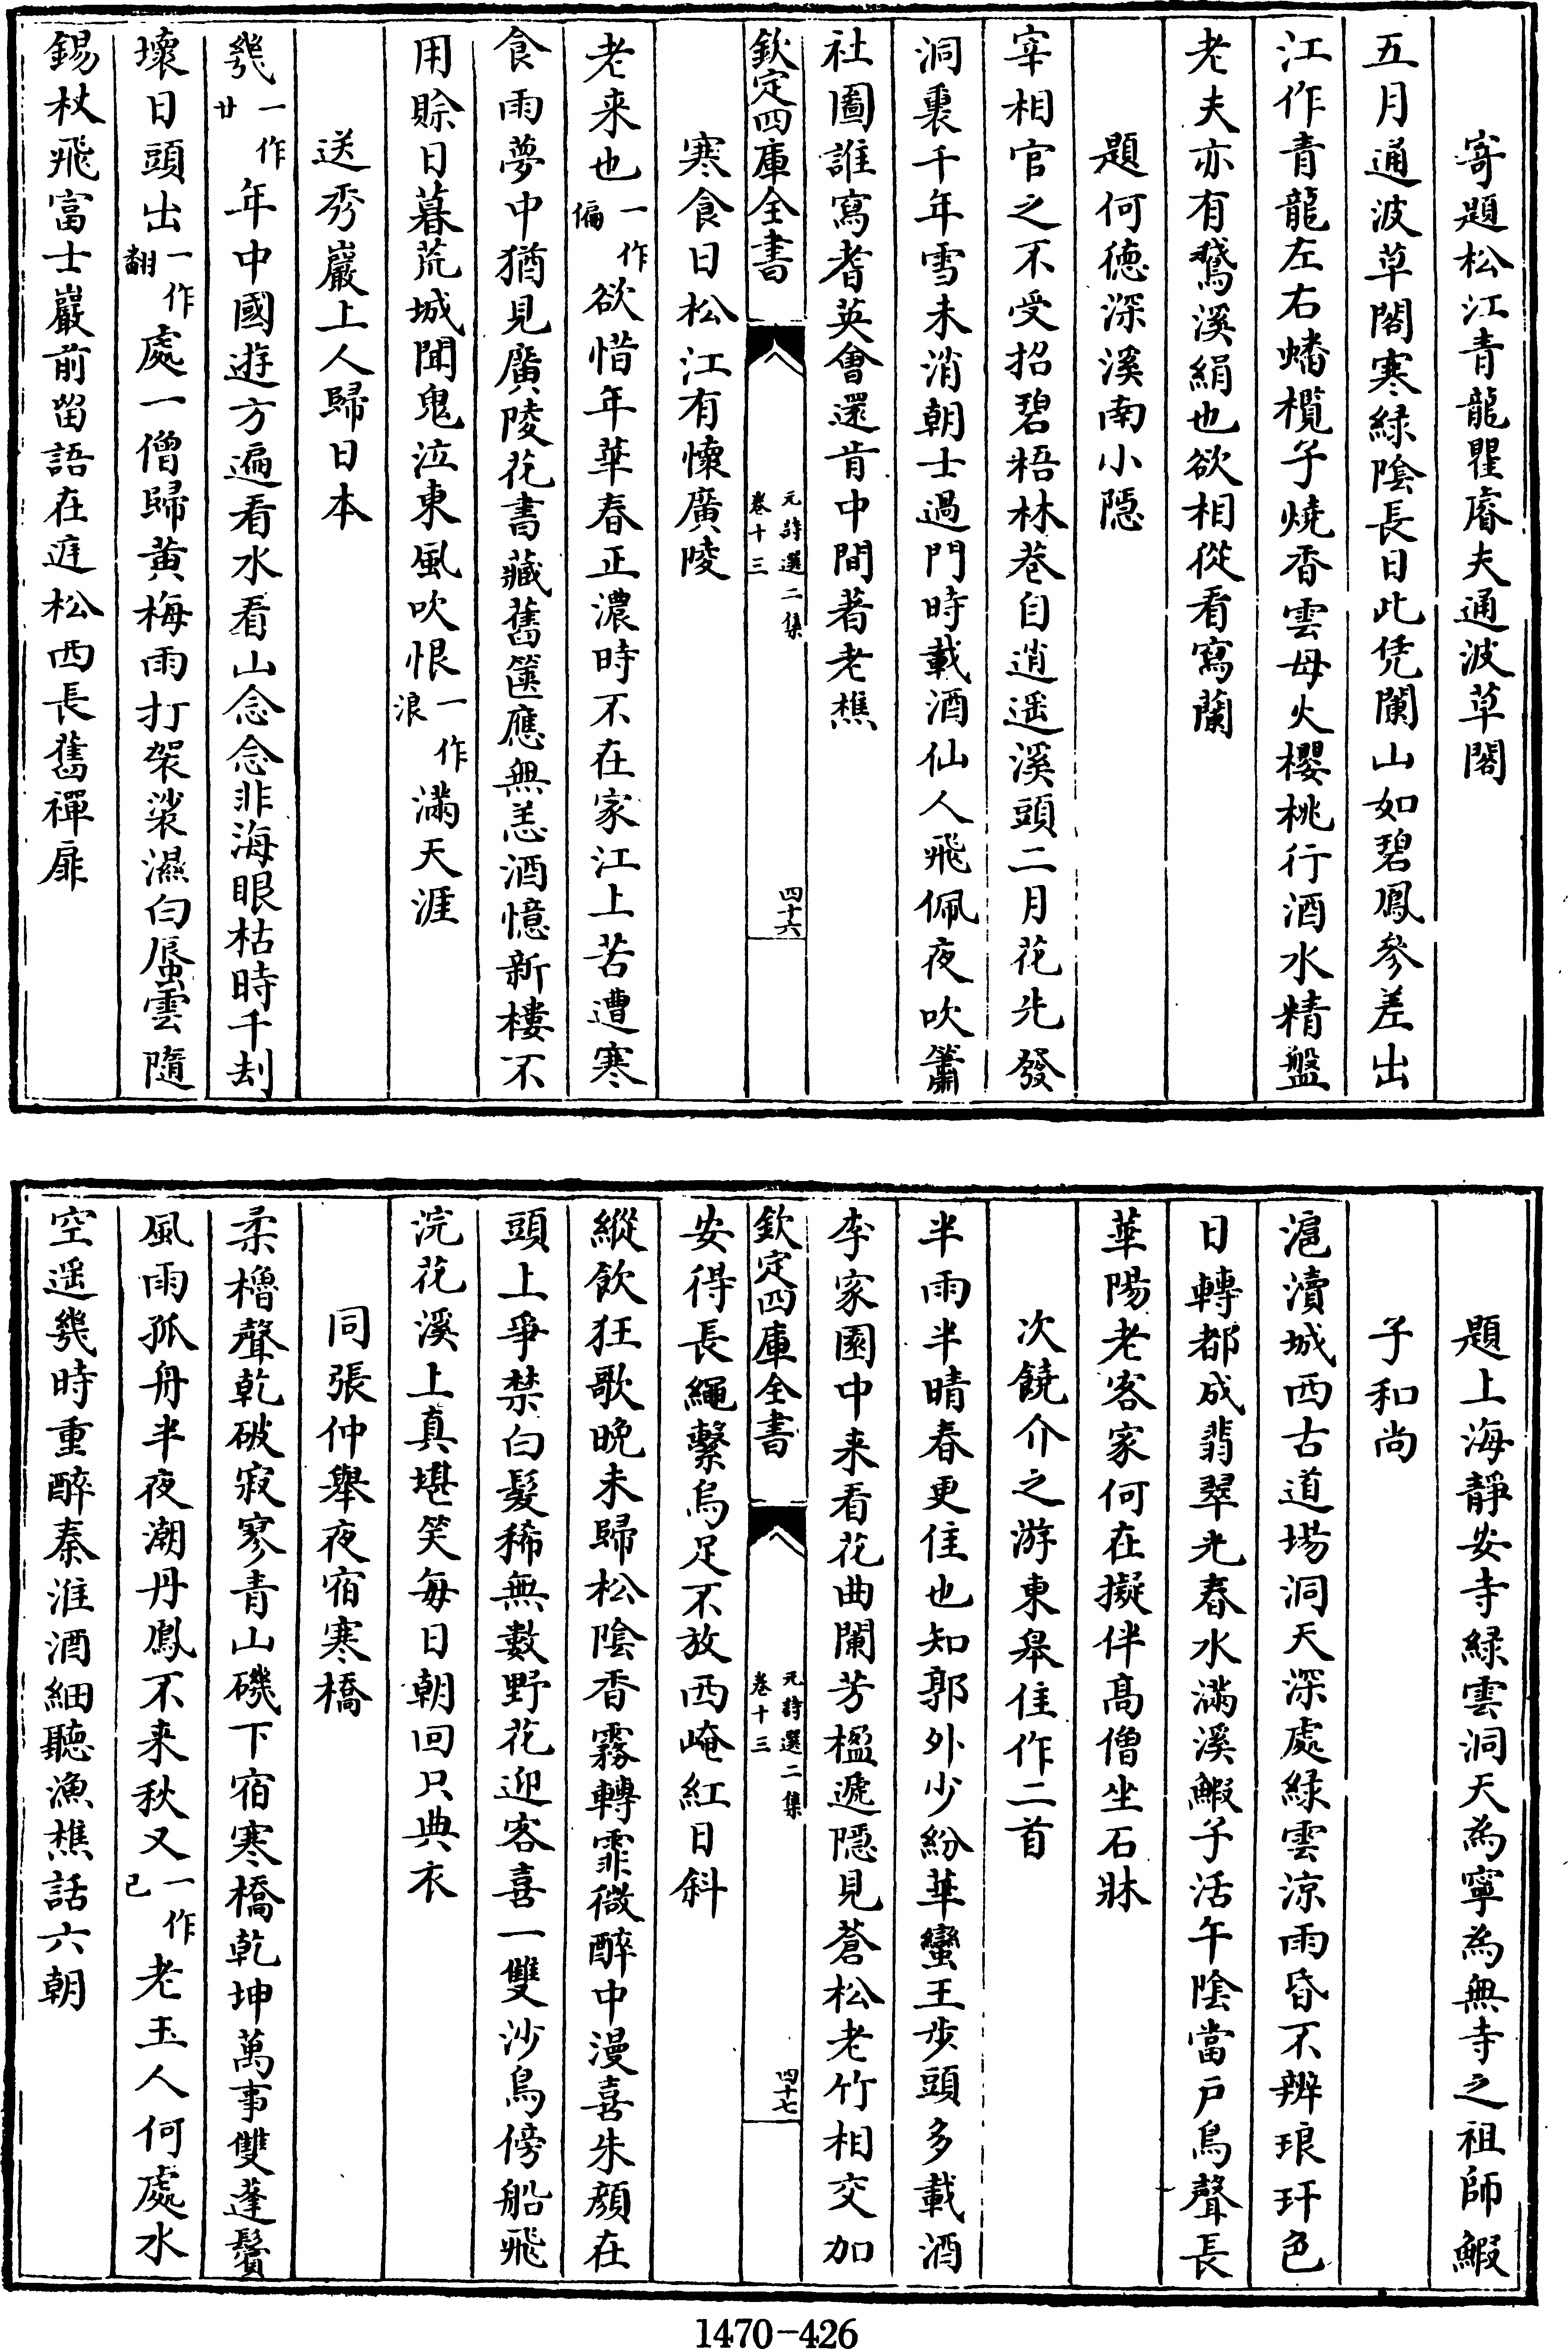 寄題松江青龍瞿睿夫通波草閣
五月通波草閣寒緑陰長日此凭闌山如碧鳳參差出
江作青龍左右蟠欖子燒香雲母火櫻桃行酒水精盤
老夫亦有鵞溪絹也欲相從看寫蘭
題何德深溪南小隱
宰相官之不受招碧梧林巷自逍遥溪頭二月花先發
洞裏千年雪未消朝士過門時載酒仙人飛佩夜吹簫
社圖誰寫耆英會還肯中間著老樵
欽定四庫全書
元詩選二集
卷十三
四十六
寒食日松江有懷廣陵
老来也一作偏欲惜年華春正濃時不在家江上苦遭寒
食雨夢中猶見廣陵花書藏舊篋應無恙酒憶新樓不
用賒日暮荒城聞鬼泣東風吹恨一作浪滿天涯
送秀巖上人歸日本
幾一作廿年中國遊方遍看水看山念念非海眼枯時千刦
壞日頭出一作翻處一僧歸黄梅雨打袈裟濕白蜃雲隨
錫杖飛富士巖前留語在遲松西長舊禪扉
題上海靜安寺緑雲洞天為寧為無寺之祖師鰕
子和尚
滬瀆城西古道場洞天深處緑雲涼雨昏不辨琅玕色
日轉都成翡翠光春水滿溪鰕子活午陰當户鳥聲長
華陽老客家何在擬伴髙僧坐石牀
次饒介之游東臯佳作二首
半雨半晴春更佳也知郭外少紛華蠻王步頭多載酒
李家園中来看花曲闌芳楹遞隠見蒼松老竹相交加
欽定四庫全書
元詩選二集
卷十三
四十七
安得長繩繫烏足不放西崦紅日斜
縱飲狂歌晩未歸松陰香霧轉霏微醉中漫喜朱顔在
頭上爭禁白髮稀無數野花迎客喜一雙沙鳥傍船飛
浣花溪上真堪笑毎日朝回只典衣
同張仲舉夜宿寒橋
柔櫓聲乾破寂寥青山磯下宿寒橋乾坤萬事雙蓬鬢
風雨孤舟半夜潮丹鳳不来秋又一作已老玉人何處水
空遥幾時重醉秦淮酒細聽漁樵話六朝
1470-426